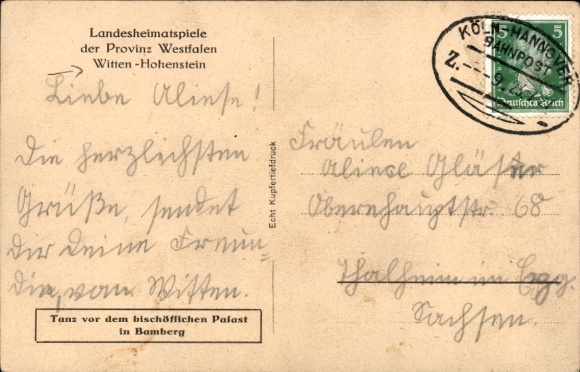 Landesheimatspiele
der Provinz Westfalen
Witten-Hohenstein
Liebe Aliese!
Die herzlichsten
Grüße, sendet
Dir Deine Freun-
din, von Witten.
Tanz vor dem bischöfflichen Palast
in Bamberg
Echt Kupfertiefdruck
KÖLN-HANNOVER
BAHNPOST
Z.
5 5
Deutsches Reich
Fräulen
Gläser
Oberehauptstr. 68
Thalheim im Egg.
Sachsen.